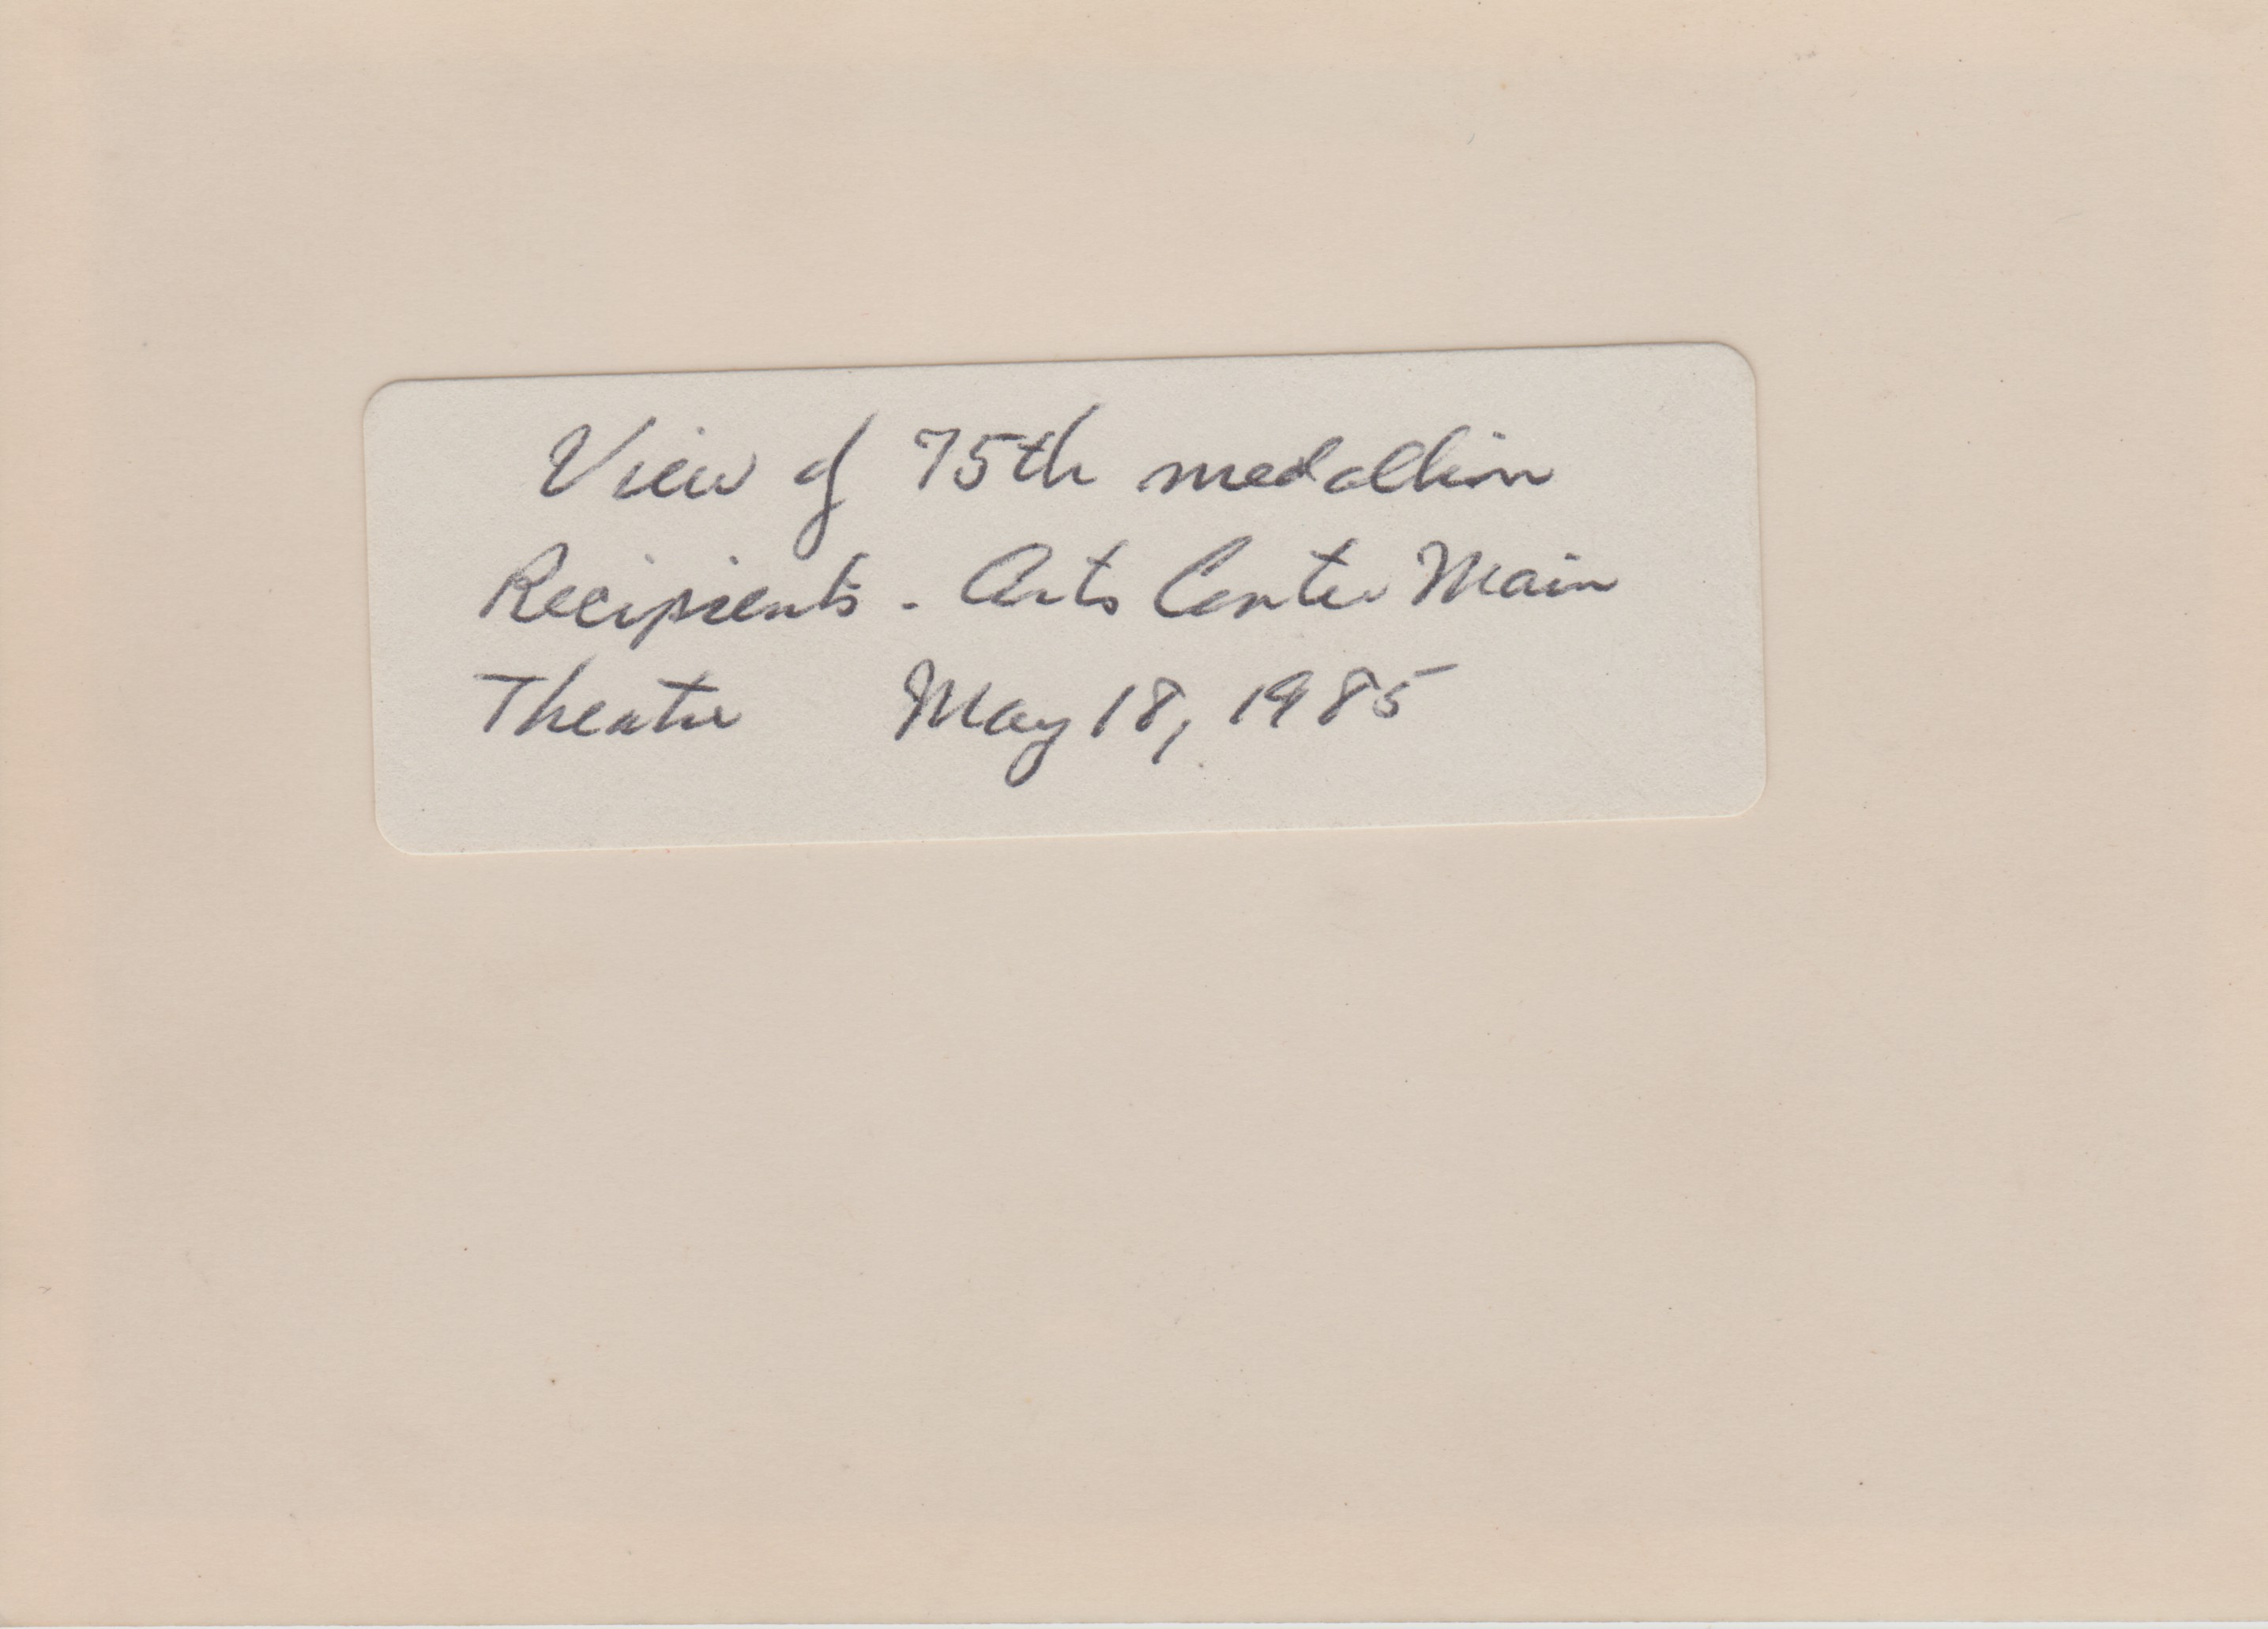 View of 75th medallion
Recipients - Arts Center Main
Theatre May 18, 1985